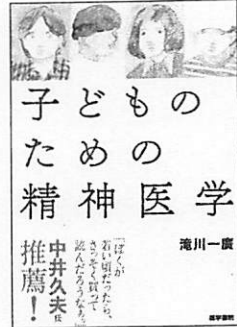 子どもの
ための
精神医学
滝川一廣
「ぼくが
若い頃だったら、
さっそく買って
読んだろうなぁ。」
中井久夫氏
推薦！
医学書院